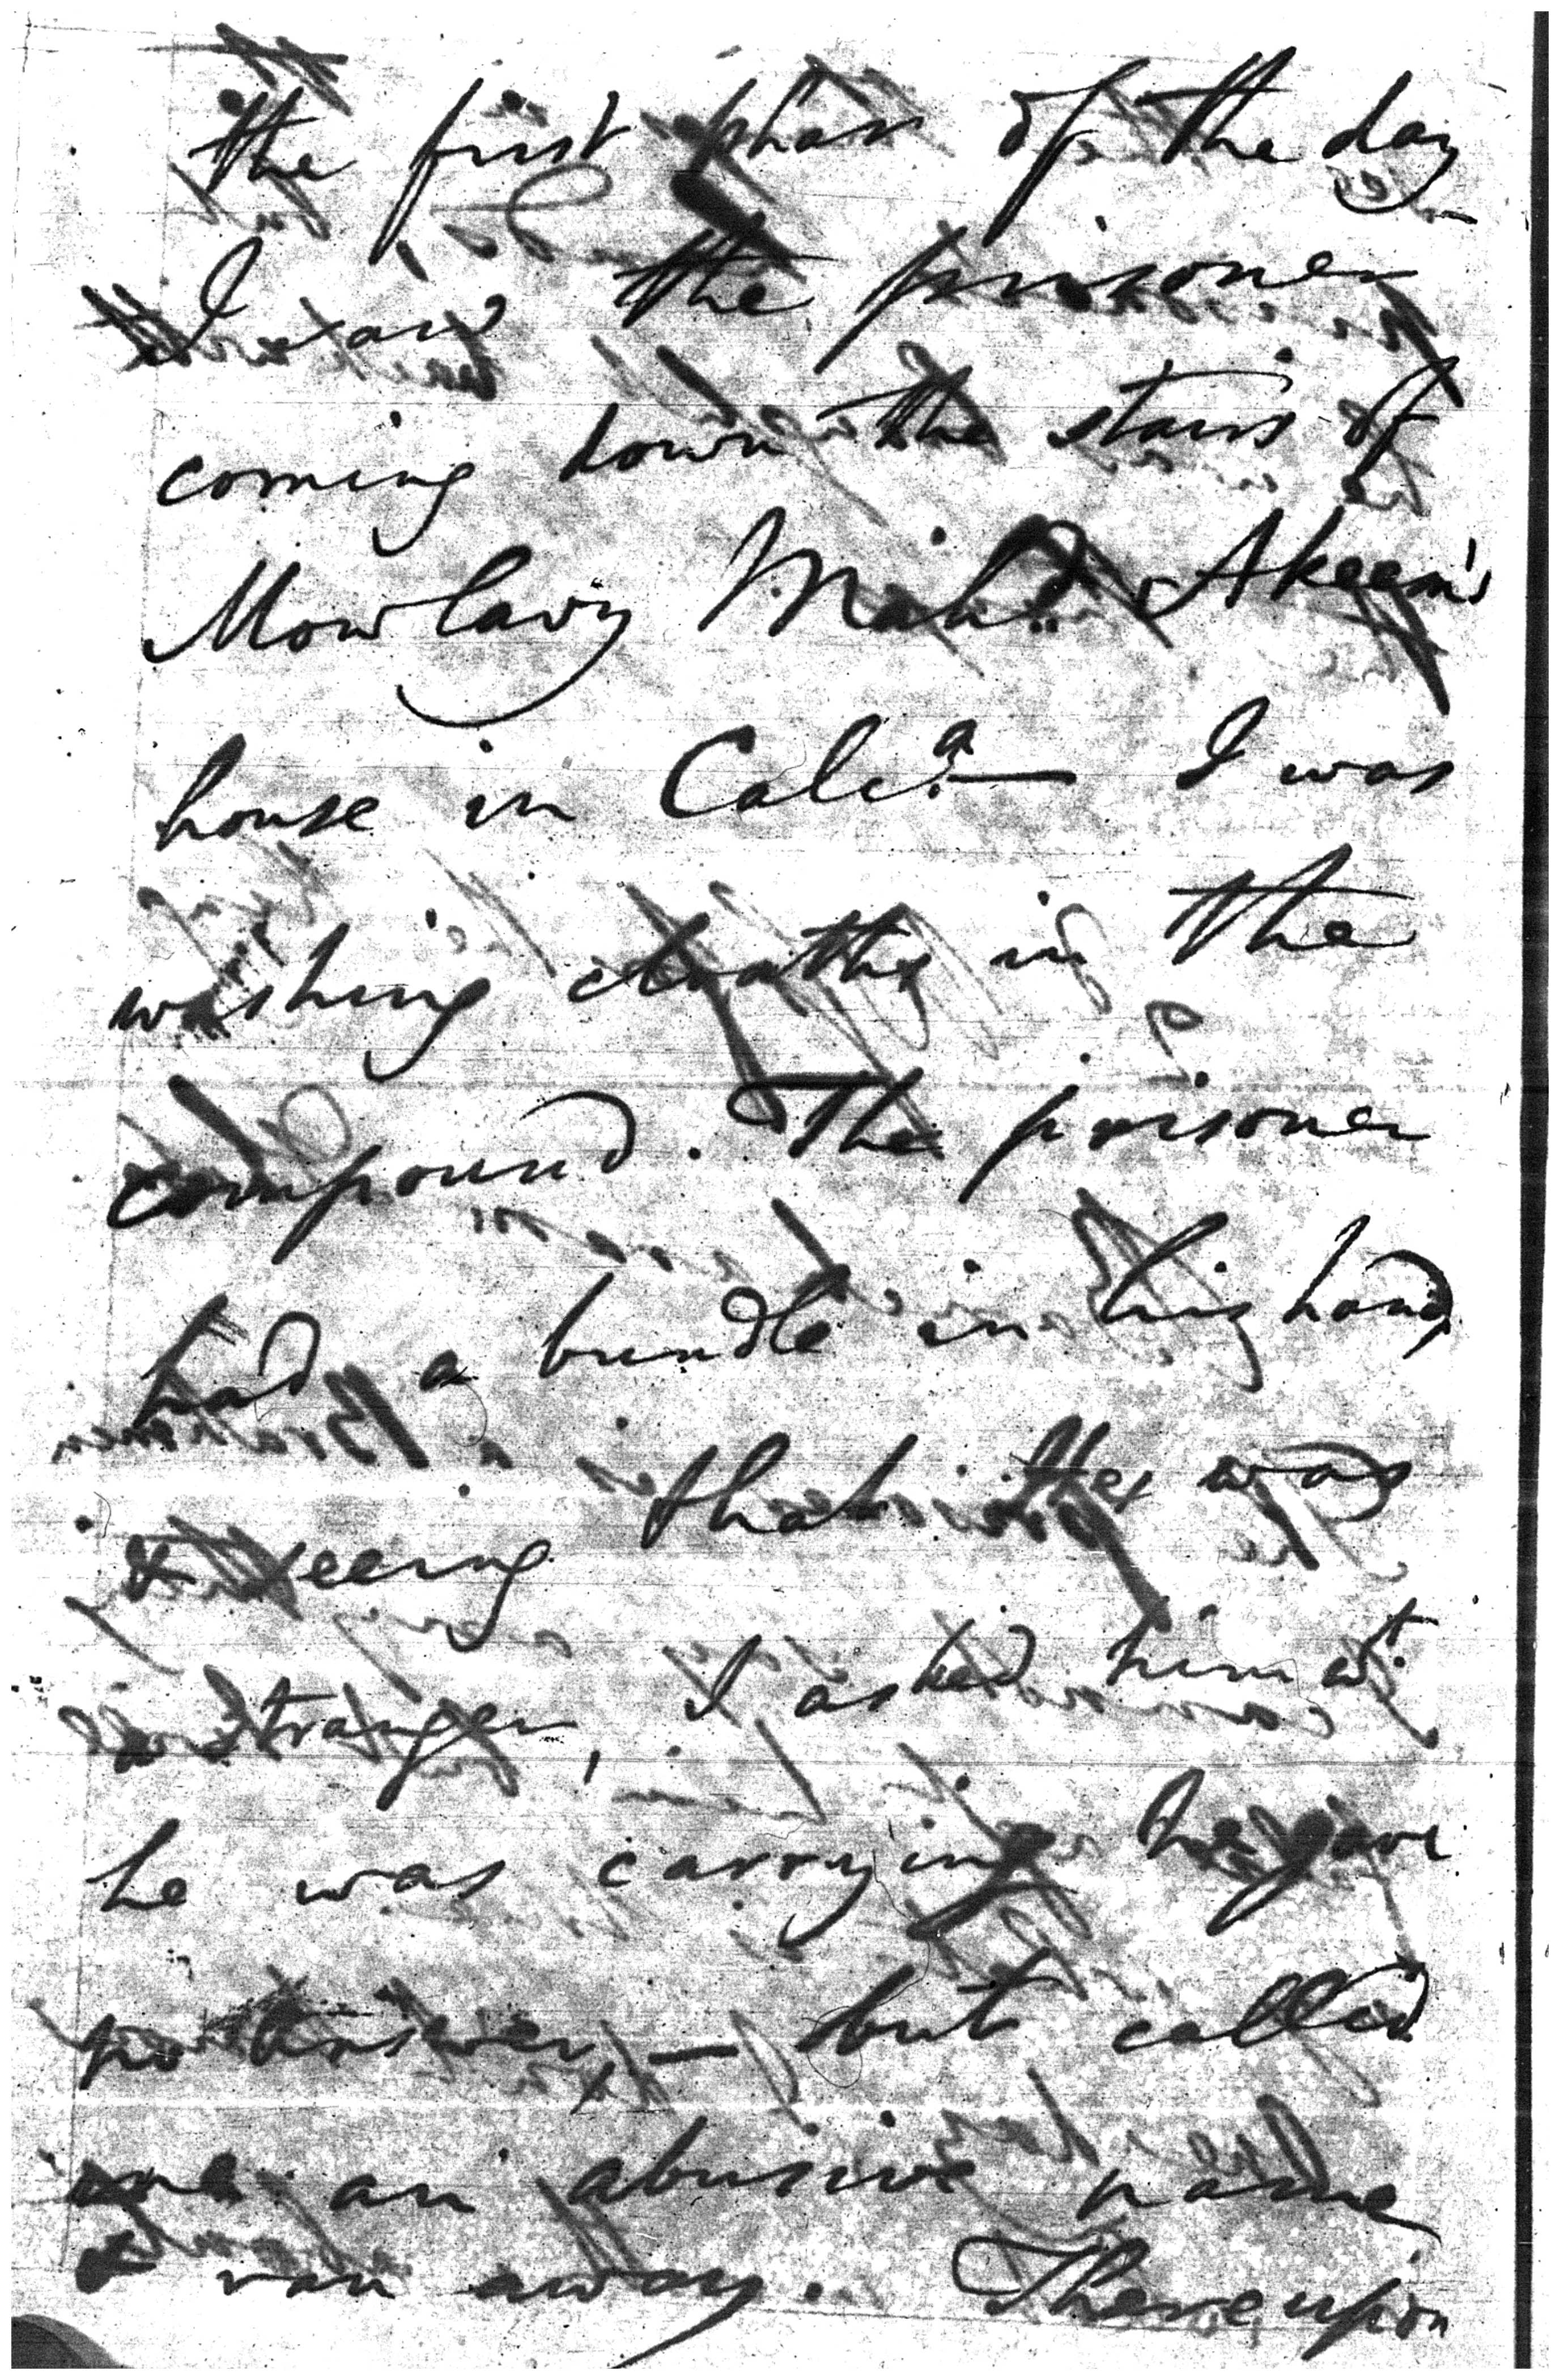 the first phar of the day
I saw the prisoner
coming down the stairs of
Mowlavy Mahd. Akeem's
house in Calca.— I was
washing cloaths in the
compound. The prisoner
had a bundle in his hand,
& seeing that he was
a stranger, I asked him wt.
he was carrying he gave
no answer, — but called
me an abusive name
& ran away. Thereupon